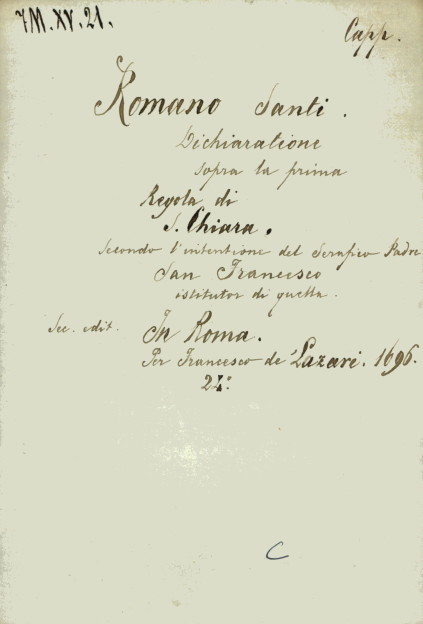 7M.XV.21.
Capp.
Romano Santi.
Dichiaratione
sopra la prima
Regola di
S. Chiara.
secondo l'intentione del Serafico Padre
San Francesco
istitutor di quella.
Sec. edit. In Roma.
Per Francesco de' Lazari. 1696.
24°.
C